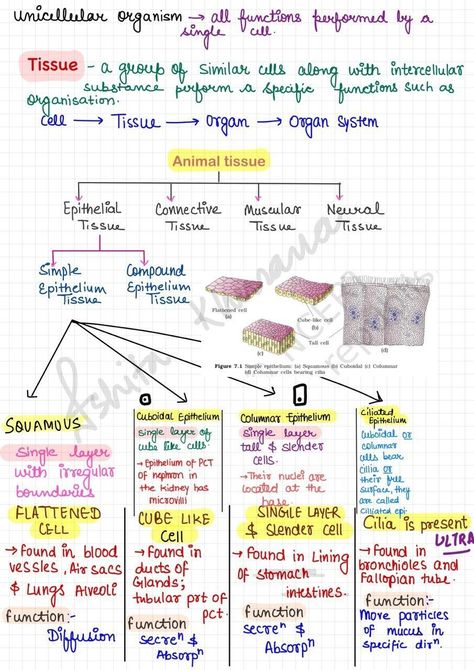 Unicellular organism → all functions performed by a
single cell.
Tissue - a group of Similar cells along with intercellular
substance perform a specific functions such as
organisation.
Cell → Tissue → Organ → Organ system
Animal tissue
Epithelial Tissue
Connective Tissue
Muscular Tissue
Neural Tissue
Simple Epithelium Tissue
Compound Epithelium Tissue
Flattened cell
(a)
Cube-like cell
(b)
Tall cell
(c)
(d)
Figure 7.1 Simple epithelium: (a) Squamous (b) Cuboidal (c) Columnar
(d) Columnar cells bearing cilia
SQUAMOUS
Single layer
with irregular
boundaries
FLATTENED
CELL
→ Found in blood
vessles, Air sacs
& Lungs Alveoli
Function:-
Diffusion
Cuboidal Epithelium
Single layer of
cube like cells
→ Epithelium of PCT
of nephron in
the kidney has
microvilli
CUBE LIKE
CELL
→ Found in
ducts of
Glands;
tubular prt of
pct.
Function
secreⁿ &
Absorpⁿ
Columnar Epithelium
Single layer
tall & slender
cells.
→ Their nuclei are
located at the
base
SINGLE LAYER
& Slender cell
→ Found in Lining
of stomach
intestines.
function
secreⁿ &
Absorpⁿ
Ciliated
Epithelium
Cuboidal or
columnar
cells bear
cillia or
their free
surface, they
are called
ciliated epi.
Cilia is present
ULTRA
→ Found in
bronchioles and
Fallopian tube.
Function:-
More particles
of mucus in
specific dirⁿ.